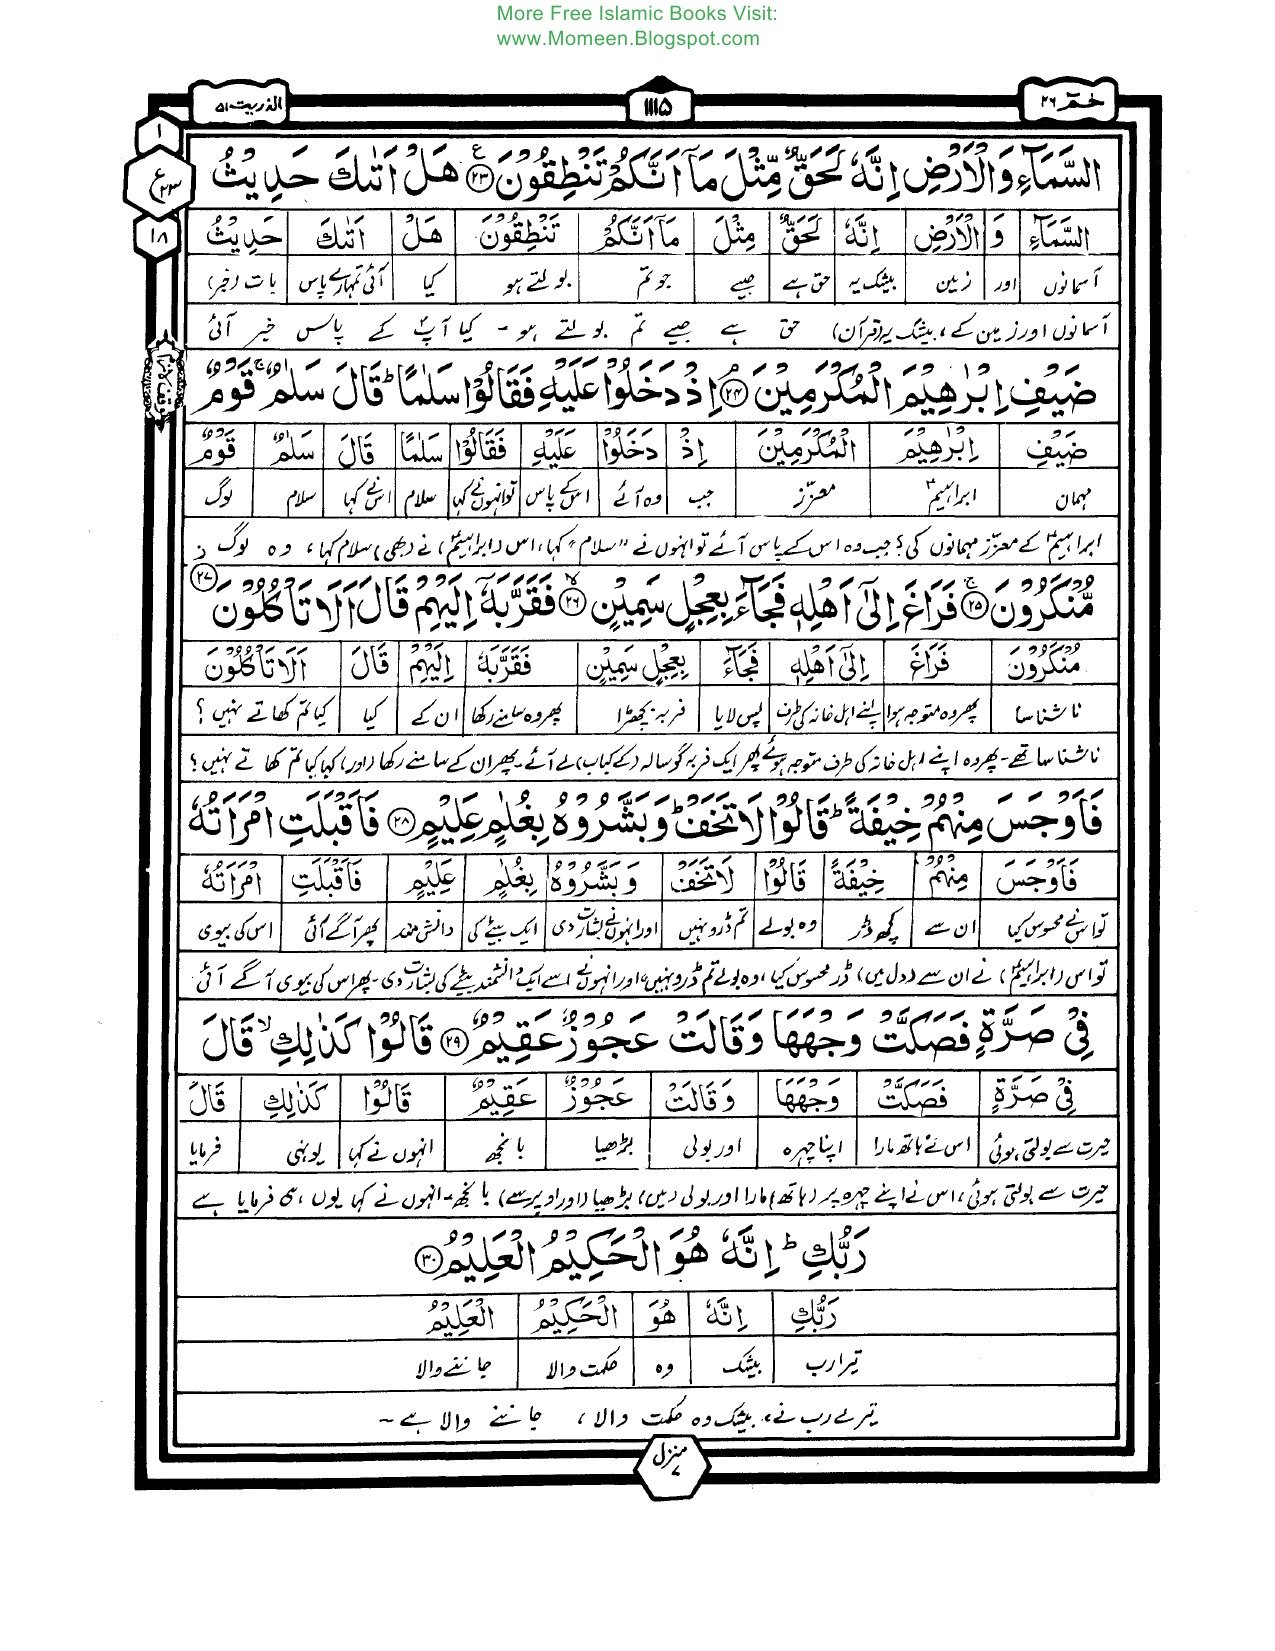 More Free Islamic Books Visit:
www.Momeen.Blogspot.com
حٰمٓ ٢٦
١١١٥
الذٰریٰت ٥١
السَّمَآءِ وَالْاَرْضِ اِنَّهٗ لَحَقٌّ مِّثْلَ مَآ اَنَّكُمْ تَنْطِقُوْنَ ﴿٢٣﴾ هَلْ اَتٰىكَ حَدِيْثُ
١
ع ٢٣
١٨
السَّمَآءِ وَ الْاَرْضِ اِنَّهٗ لَحَقٌّ مِثْلَ مَآ اَنَّكُمْ تَنْطِقُوْنَ هَلْ اَتٰىكَ حَدِيْثُ
آسمانوں اور زمین بیشک یہ حق ہے جیسے جو تم بولتے ہو کیا آئی تمہارے پاس بات (خبر)
آسمانوں اور زمین کے، بیشک یہ (قرآن) حق ہے جیسے تم بولتے ہو - کیا آپؐ کے پاس خبر آئی
ضَيْفِ اِبْرٰهِيْمَ الْمُكْرَمِيْنَ ﴿٢٤﴾ اِذْ دَخَلُوْا عَلَيْهِ فَقَالُوْا سَلٰمًا ؕ قَالَ سَلٰمٌ ۚ قَوْمٌ
ضَيْفِ اِبْرٰهِيْمَ الْمُكْرَمِيْنَ اِذْ دَخَلُوْا عَلَيْهِ فَقَالُوْا سَلٰمًا قَالَ سَلٰمٌ قَوْمٌ
مہمان ابراہیمؑ معزّز جب وہ آئے اس کے پاس تو انہوں نے کہا سلام اس نے کہا سلام لوگ
ابراہیمؑ کے معزّز مہمانوں کی؟ جب وہ اس کے پاس آئے تو انہوں نے "سلام" کہا، اس (ابراہیمؑ) نے (بھی) سلام کہا، وہ لوگ
مُّنْكَرُوْنَ ﴿٢٥﴾ فَرَاغَ اِلٰٓى اَهْلِهٖ فَجَآءَ بِعِجْلٍ سَمِيْنٍ ﴿٢٦﴾ فَقَرَّبَهٗٓ اِلَيْهِمْ قَالَ اَلَا تَاْكُلُوْنَ ﴿٢٧﴾
مُنْكَرُوْنَ فَرَاغَ اِلٰٓى اَهْلِهٖ فَجَآءَ بِعِجْلٍ سَمِيْنٍ فَقَرَّبَهٗٓ اِلَيْهِمْ قَالَ اَلَا تَاْكُلُوْنَ
ناشناسا پھر وہ متوجہ ہوا اپنے اہل خانہ کی طرف پس لایا فربہ بچھڑا پھر وہ سامنے رکھا ان کے کہا کیا تم کھاتے نہیں؟
ناشناسا تھے - پھر وہ اپنے اہل خانہ کی طرف متوجہ ہوئے پھر ایک فربہ گوسالہ (کے کباب) لے آئے - پھر ان کے سامنے رکھا (اور) کہا کیا تم کھاتے نہیں؟
فَاَوْجَسَ مِنْهُمْ خِيْفَةً ؕ قَالُوْا لَا تَخَفْ ؕ وَبَشَّرُوْهُ بِغُلٰمٍ عَلِيْمٍ ﴿٢٨﴾ فَاَقْبَلَتِ امْرَاَتُهٗ
فَاَوْجَسَ مِنْهُمْ خِيْفَةً قَالُوْا لَا تَخَفْ وَبَشَّرُوْهُ بِغُلٰمٍ عَلِيْمٍ فَاَقْبَلَتِ امْرَاَتُهٗ
تو اس نے محسوس کیا ان سے کچھ ڈر وہ بولے تم ڈرو نہیں اور انہوں نے بشارت دی ایک بیٹے کی دانش مند پھر آگے آئی اس کی بیوی
تو اس (ابراہیمؑ) نے ان سے (دل میں) ڈر محسوس کیا، وہ بولے تم ڈرو نہیں، اور انہوں نے اسے ایک دانشمند بیٹے کی بشارت دی - پھر اس کی بیوی آگے آئی
فِيْ صَرَّةٍ فَصَكَّتْ وَجْهَهَا وَقَالَتْ عَجُوْزٌ عَقِيْمٌ ﴿٢٩﴾ قَالُوْا كَذٰلِكِ ۙ قَالَ
فِيْ صَرَّةٍ فَصَكَّتْ وَجْهَهَا وَقَالَتْ عَجُوْزٌ عَقِيْمٌ قَالُوْا كَذٰلِكِ قَالَ
حیرت سے بولتی ہوئی اس نے ہاتھ مارا اپنا چہرہ اور بولی بڑھیا بانجھ انہوں نے کہا یونہی فرمایا
حیرت سے بولتی ہوئی، اس نے اپنے چہرہ پر (ہاتھ) مارا اور بولی (میں) بڑھیا (اور اوپر سے) بانجھ - انہوں نے کہا یوں ہی فرمایا ہے
رَبُّكِ ؕ اِنَّهٗ هُوَ الْحَكِيْمُ الْعَلِيْمُ ﴿٣٠﴾
رَبُّكِ اِنَّهٗ هُوَ الْحَكِيْمُ الْعَلِيْمُ
تیرا رب بیشک وہ حکمت والا جاننے والا
تیرے رب نے، بیشک وہ حکمت والا، جاننے والا ہے -
منزل ٧